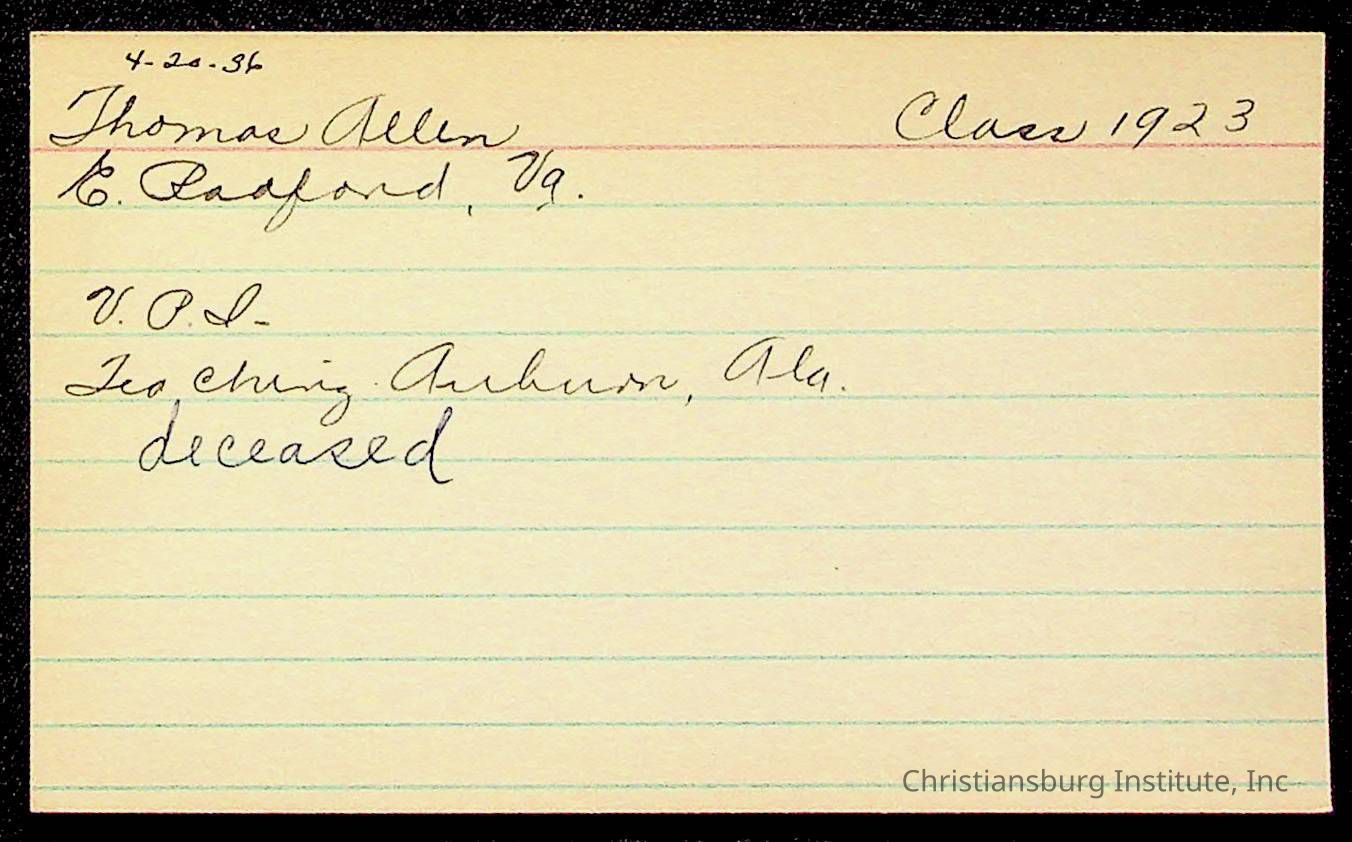 4-20-36
Thomas Allen Class 1923
E. Radford, Va.
V. P. I-
Teaching Auburn, Ala.
deceased
Christiansburg Institute, Inc